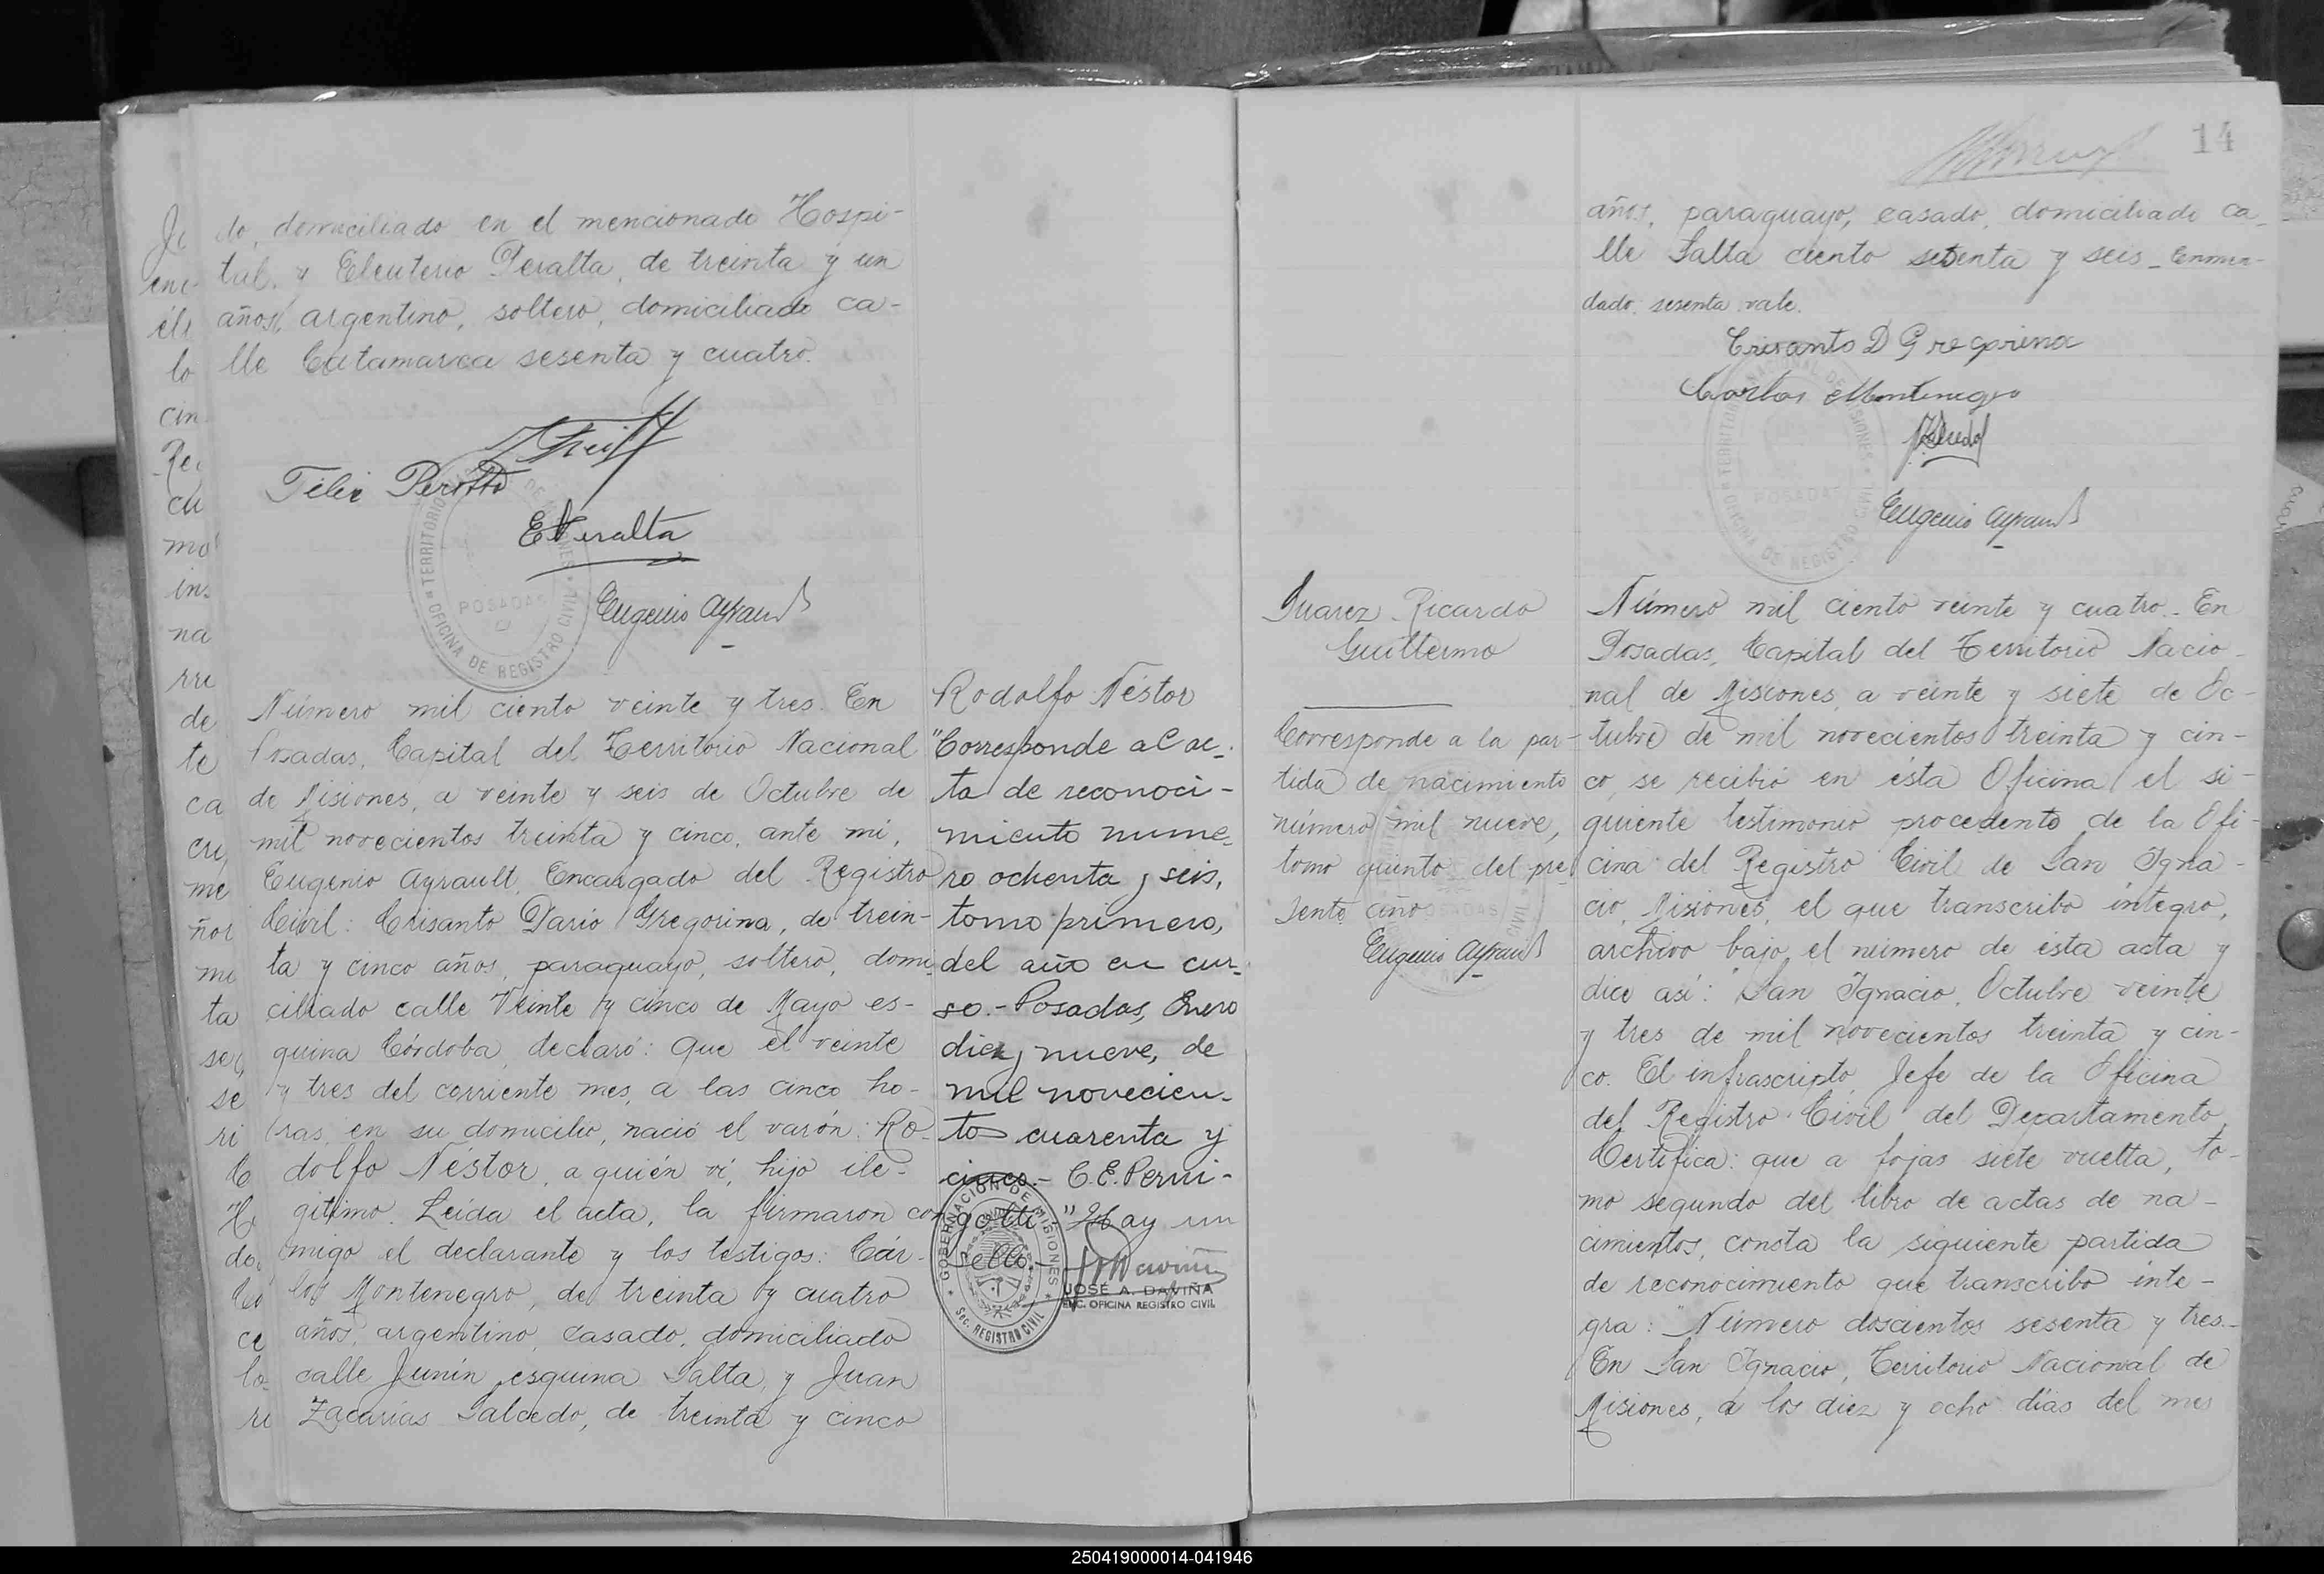 do, domiciliado en el mencionado Hospi-
tal, y Eleuterio Peralta, de treinta y un
años, argentino, soltero, domiciliado ca-
lle Catamarca sesenta y cuatro.
Felix Perotto
E Peralta
TERRITORIO NACIONAL DE MISIONES
POSADAS
OFICINA DE REGISTRO CIVIL
Eugenio Ayrault
Número mil ciento veinte y tres. En
Posadas, Capital del Territorio Nacional
de Misiones, a veinte y seis de Octubre de
mil novecientos treinta y cinco, ante mí,
Eugenio Ayrault, Encargado del Registro
Civil: Crisanto Dario Gregorina, de trein-
ta y cinco años, paraguayo, soltero, domi-
ciliado calle Veinte y cinco de Mayo es-
quina Córdoba, declaró: Que el veinte
y tres del corriente mes, a las cinco ho-
ras, en su domicilio, nació el varón: Ro-
dolfo Néstor, a quién ví, hijo ile-
gitimo. Leída el acta, la firmaron con-
migo el declarante y los testigos: Cár-
los Montenegro, de treinta y cuatro
años, argentino, casado, domiciliado
calle Junín esquina Salta, y Juan
Zacarías Salcedo, de treinta y cinco
Rodolfo Néstor
"Corresponde al ac-
ta de reconoci-
miento nume-
ro ochenta y seis,
tomo primero,
del año en cur-
so.- Posadas, Enero
diez y nueve, de
mil novecien-
tos cuarenta y
cinco.- C.E. Perui-
gotti-" Hay un
sello.-
GOBERNACION DE MISIONES
SEC. REGISTRO CIVIL
JOSÉ A. DAVIÑA
ENC. OFICINA REGISTRO CIVIL
14
años, paraguayo, casado, domiciliado ca-
lle Salta ciento sesenta y seis_ Enmen-
dado: sesenta vale.
Crisanto D Gregorina
Carlos Montenegro
JZSalcedo
TERRITORIO NACIONAL DE MISIONES
POSADAS
OFICINA DE REGISTRO CIVIL
Eugenio Ayrault
Suarez Ricardo
Guillermo
Corresponde a la par-
tida de nacimiento
número mil nueve,
tomo quinto del pre-
sente año
Eugenio Ayrault
Número mil ciento veinte y cuatro_ En
Posadas, Capital del Territorio Nacio-
nal de Misiones, a veinte y siete de Oc-
tubre de mil novecientos treinta y cin-
co, se recibió en ésta Oficina el si-
guiente testimonio procedente de la Ofi-
cina del Registro Civil de San Igna-
cio, Misiones, el que transcribo íntegro,
archivo bajo el número de ésta acta y
dice así: "San Ignacio, Octubre veinte
y tres de mil novecientos treinta y cin-
co. El infrascripto, Jefe de la Oficina
del Registro Civil del Departamento,
Certifica: que a fojas siete vuelta, to-
mo segundo del libro de actas de na-
cimientos, consta la siguiente partida
de reconocimiento que transcribo ínte-
gra: "Número doscientos sesenta y tres_
En San Ignacio, Territorio Nacional de
Misiones, a los diez y ocho días del mes
250419000014-041946